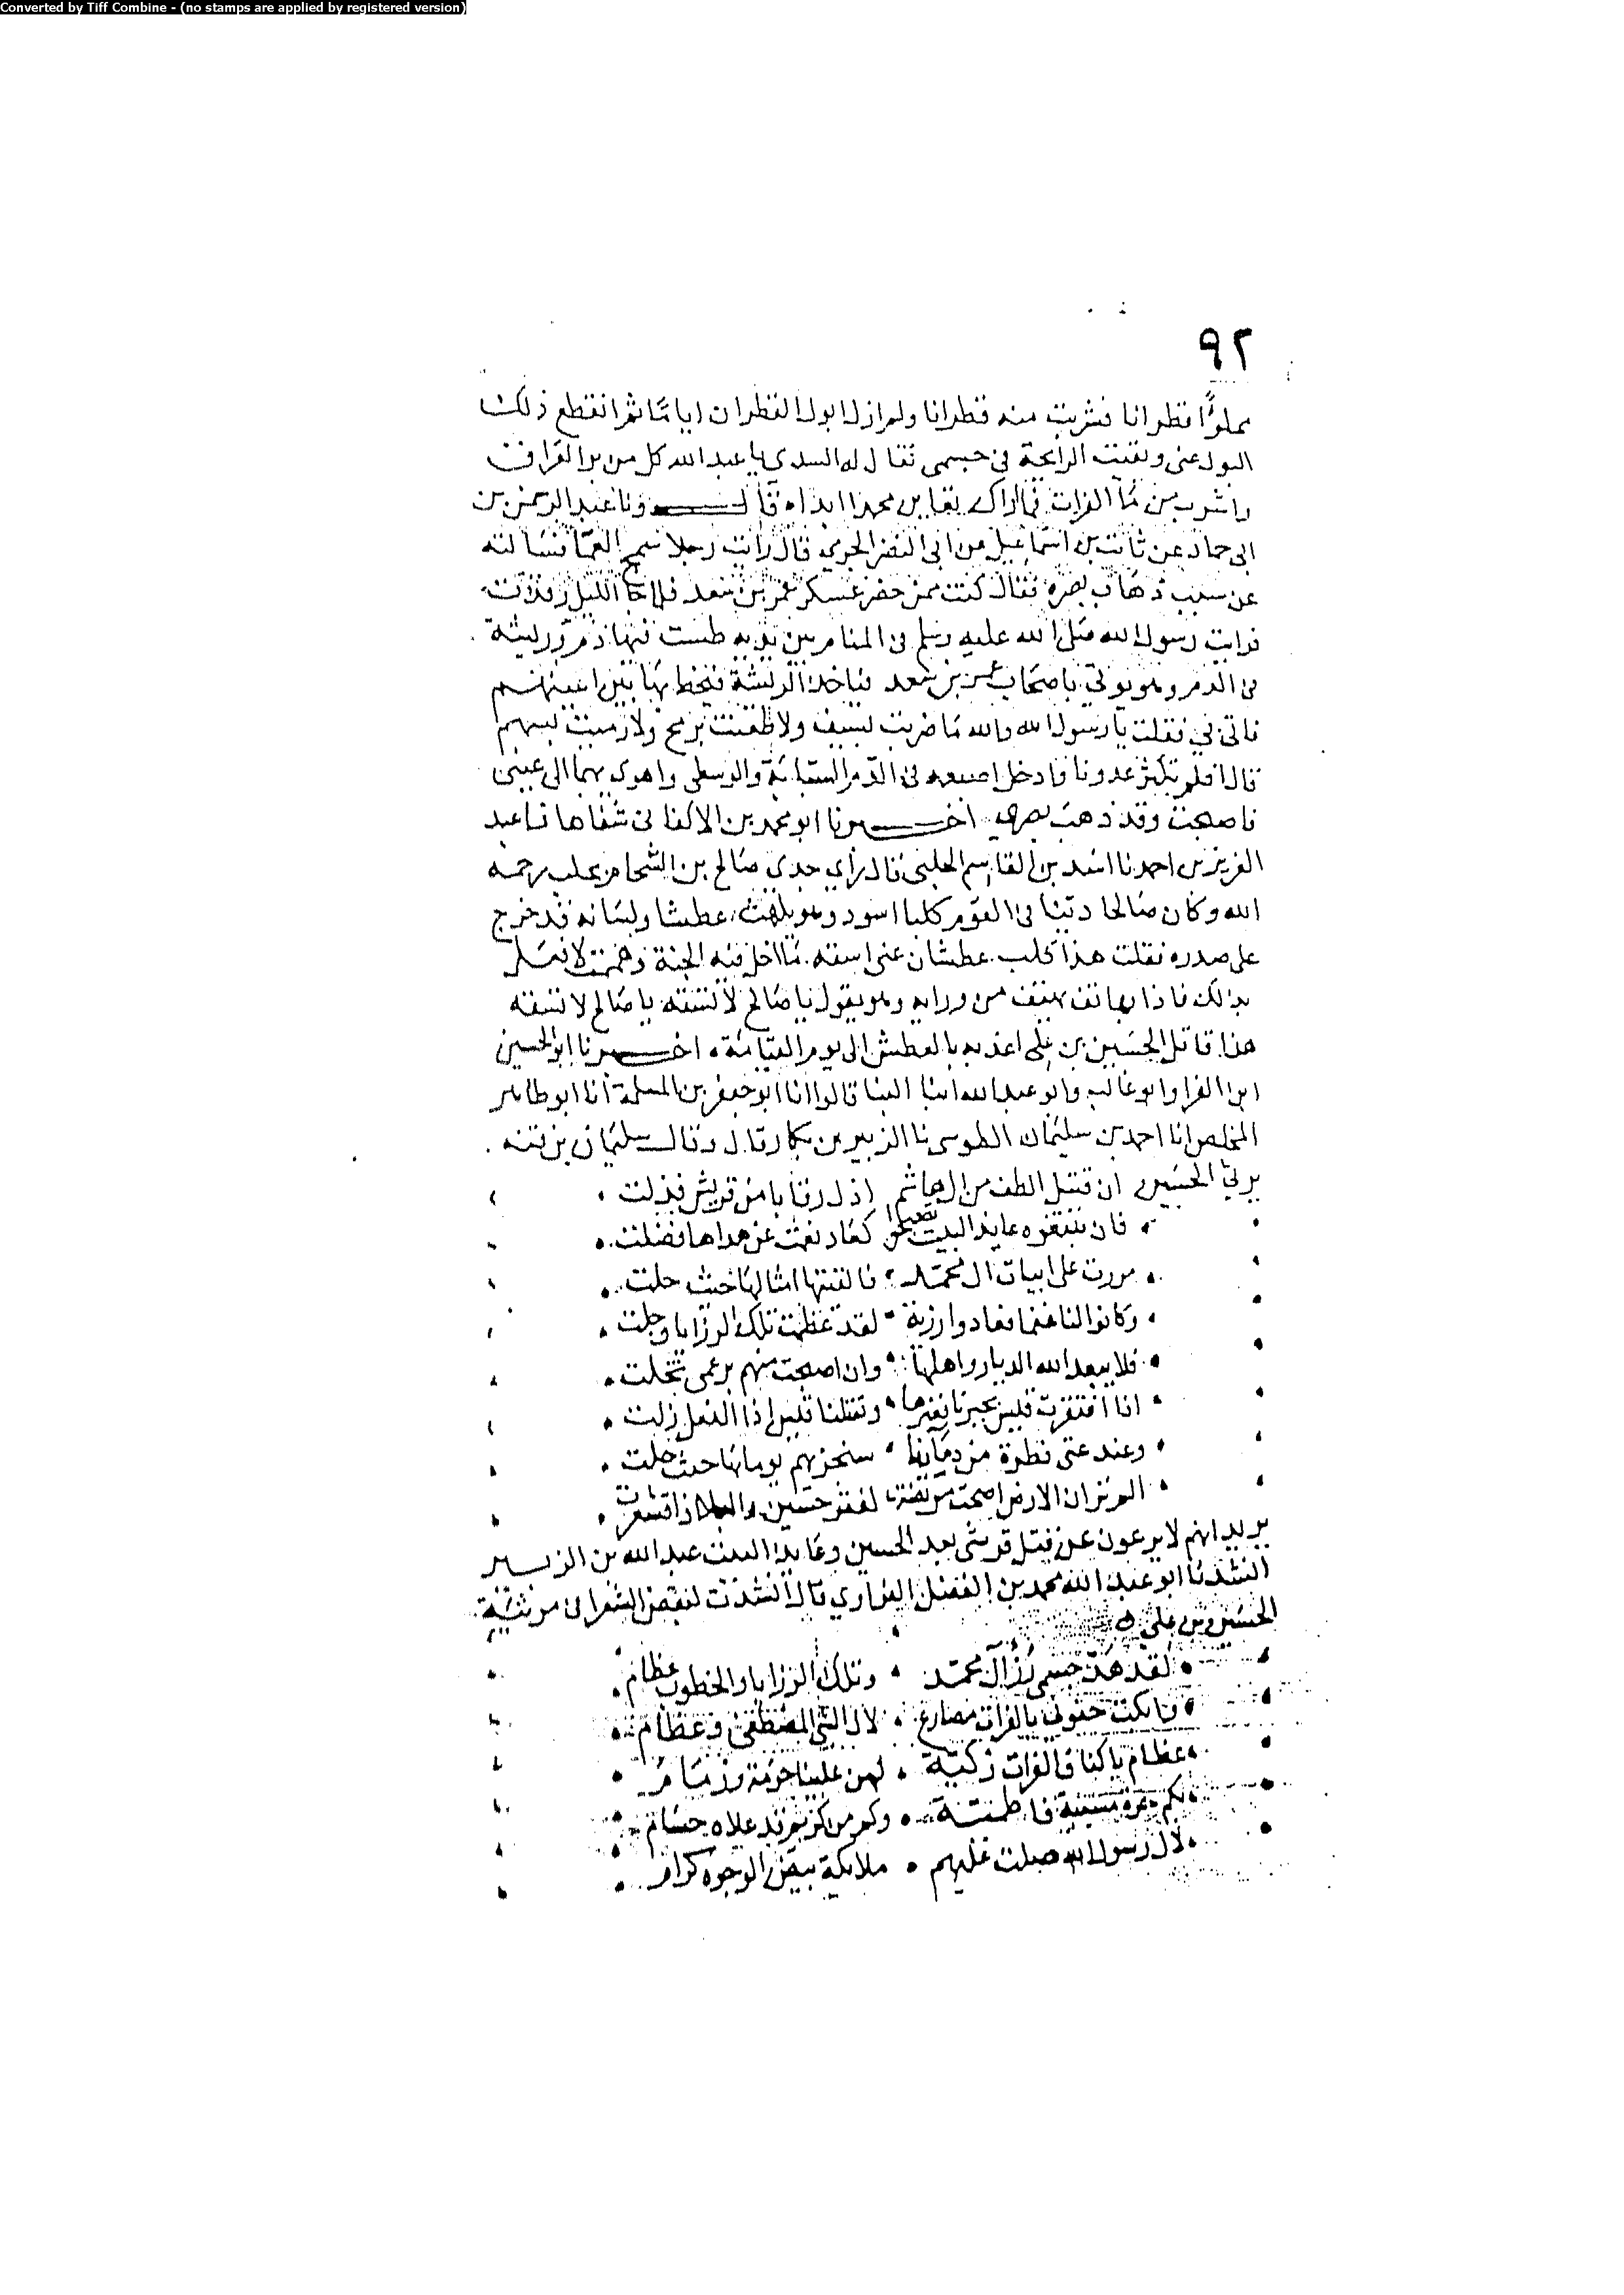 Converted by Tiff Combine - (no stamps are applied by registered version)
٩٢
مملوًّا قطرانا فشربت منه قطرانا ولم ازل ابول القطران اياما ثم انقطع ذلك
البول عني وبقيت الرايحة في جسمي فقال له السدي يا عبد الله كل من بر العراق
واشرب من ما الفرات فما اراك تعاين محمدا ابدا ه قال ونا عبد الرحمن بن
ابي حماد عن ثابت بن اسماعيل عن ابي النضر الجرمي قال رايت رجلا سمج العما فسالته
عن سبب ذهاب بصره فقال كنت ممن حضر عسكر عمر بن سعد فلما جا الليل رقدت
فرايت رسول الله صلى الله عليه وسلم في المنام بين يديه طست فيها دم وريشة
في الدم وهو يوتى باصحاب عمر بن سعد فياخذ الريشة فيخط بها بين اعينهم
فاتى بي فقلت يا رسول الله والله ما ضربت بسيف ولا طعنت برمح ولا رميت بسهم
قال افلم تكثر عدونا فادخل اصبعه في الدم السبابة والوسطى واهوى بهما الى عيني
فاصبحت وقد ذهب بصري اخبرنا ابو محمد بن الاكفاني شفاها نا عبد
العزيز بن احمد نا اسد بن القاسم الحلبي قال راى جدي صالح بن الشحام بحلب رحمه
الله وكان صالحا دينا في النوم كلبا اسود وهو يلهث عطشا ولسانه قد خرج
على صدره فقلت هذا كلب عطشان دعني اسقه ما ادخل فيه الجنة وهممت لافعل
بذلك فاذا بهاتف يهتف من ورايه وهو يقول يا صالح لا تسقه يا صالح لا تسقه
هذا قاتل الحسين بن علي اعذبه بالعطش الى يوم القيامة اخبرنا ابو الحسين
ابن الفرا وابو غالب وابو عبد الله ابنا البنا قالوا انا ابو جعفر بن المسلمة انا ابو طاهر
المخلص انا احمد بن سليمان الطوسي نا الزبير بن بكار قال وقال سليمان بن قتة
يرثي الحسين ان قتيل الطف من ال هاشم اذل رقابا من قريش فذلت
فان تتبعوه عايذ البيت تصبحوا كعاد تعمت عن هداها فضلت
مررت على ابيات ال محمد فالفيتها امثالها حيث حلت
وكانوا لنا غنما فعادوا رزية لقد عظمت تلك الرزايا وجلت
فلا يبعد الله الديار واهلها وان اصبحت منهم برغمي تخلت
اذا افتقرت قيس جبرنا فقيرها وتقتلنا قيس اذا النعل زلت
وعند غني قطرة من دماينا سنجزيهم يوما بها حيث حلت
الم تر ان الارض اضحت مريضة لفقد حسين والبلاد اقشعرت
يريد انهم لا يرعون عن قتل قرشي بعد الحسين وعايذ البيت عبد الله بن الزبير
انشدنا ابو عبد الله محمد بن الفضل الفراوي قال انشدت لبعض الشعرا في مرثية
الحسين بن علي ه
لقد هد جسمي رزء آل محمد وتلك الرزايا والخطوب عظام
وابكت جفوني بالفرات مصارع لال النبي المصطفى وعظام
عظام باكناف الفرات زكية لهن علينا حرمة وذمام
فكم حرة مسبية فاطمية وكم من كريم قد علاه حسام
لال رسول الله صلت عليهم ملايكة بيض الوجوه كرام